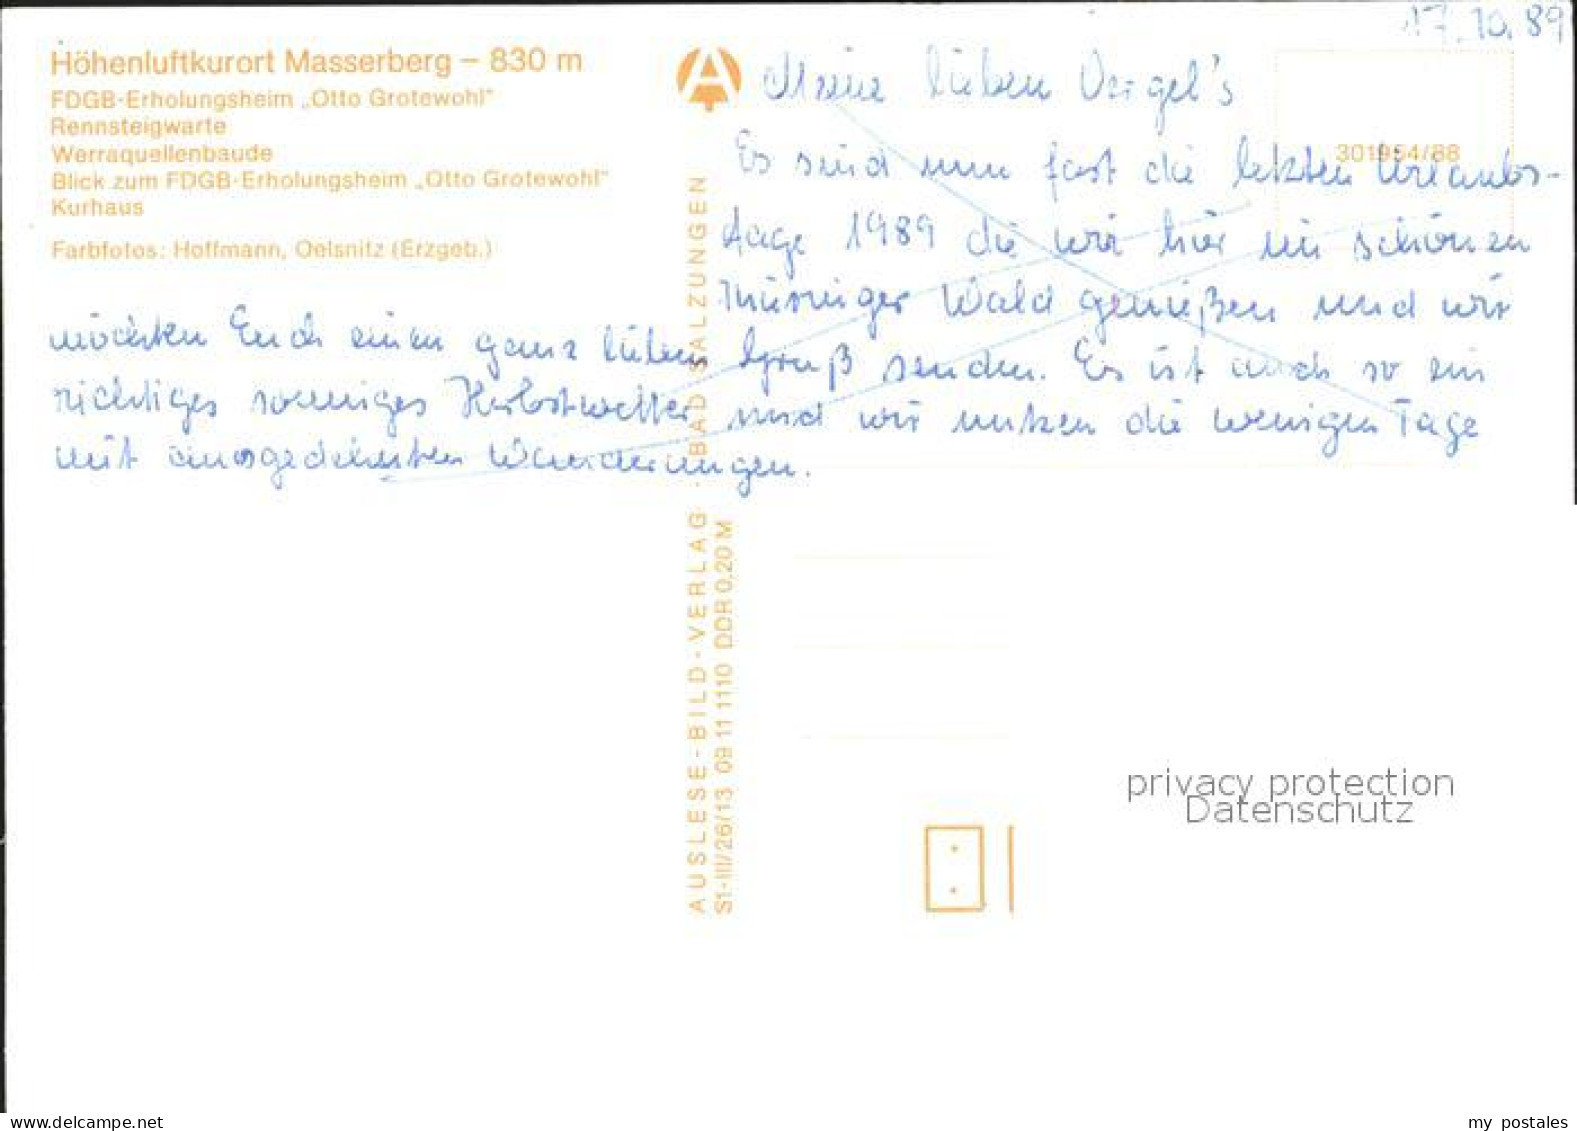 17.10.89
Höhenluftkurort Masserberg – 830 m
FDGB-Erholungsheim „Otto Grotewohl"
Rennsteigwarte
Werraquellenbaude
Blick zum FDGB-Erholungsheim „Otto Grotewohl"
Kurhaus
Farbfotos: Hoffmann, Oelsnitz (Erzgeb.)
301954/88
Meine lieben
Es sind nun fast die letzten Urlaubs-
tage 1989 die wir hier im schönen
Thüringer Wald genießen und wir
möchten Euch einen ganz lieben Gruß senden. Es ist auch so ein
richtiges sonniges Herbstwetter und wir nutzen die wenigen Tage
mit ausgedehnten Wanderungen.
AUSLESE-BILD-VERLAG · BAD SALZUNGEN
S1-III/26/13 09 11 1110 DDR 0,20 M
privacy protection
Datenschutz
delcampe.net
my postales